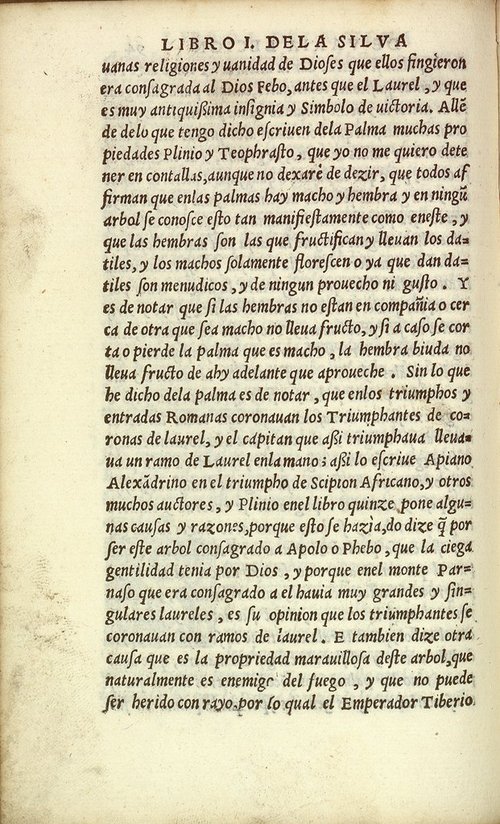 LIBRO I. DELA SILVA
uanas religiones y uanidad de Dioses que ellos fingieron
era consagrada al Dios Febo, antes que el Laurel, y que
es muy antiquißima insignia y Simbolo de uictoria. Allẽ
de delo que tengo dicho escriuen dela Palma muchas pro
piedades Plinio y Teophrasto, que yo no me quiero dete
ner en contallas, aunque no dexarè de dezir, que todos af
firman que enlas palmas hay macho y hembra y en ningũ
arbol se conosce esto tan manifiestamente como eneste, y
que las hembras son las que fructifican y lleuan los da=
tiles, y los machos solamente florescen o ya que dan da=
tiles son menudicos, y de ningun prouecho ni gusto. Y
es de notar que si las hembras no estan en compañia o cer
ca de otra que sea macho no lleua fructo, y si a caso se cor
ta o pierde la palma que es macho, la hembra biuda no
lleua fructo de ahy adelante que aproueche. Sin lo que
he dicho dela palma es de notar, que enlos triumphos y
entradas Romanas coronauan los Triumphantes de co=
ronas de laurel, y el capitan que aßi triumphaua lleua=
ua un ramo de Laurel enla mano; aßi lo escriue Apiano
Alexãdrino en el triumpho de Scipion Africano, y otros
muchos auctores, y Plinio enel libro quinze pone algu=
nas causas y razones, porque esto se hazia, do dize q̃ por
ser este arbol consagrado a Apolo o Phebo, que la ciega
gentilidad tenia por Dios, y porque enel monte Par=
naso que era consagrado a el hauia muy grandes y sin=
gulares laureles, es su opinion que los triumphantes se
coronauan con ramos de laurel. E tambien dize otra
causa que es la propriedad marauillosa deste arbol, que
naturalmente es enemigo del fuego, y que no puede
ser herido con rayo. por lo qual el Emperador Tiberio